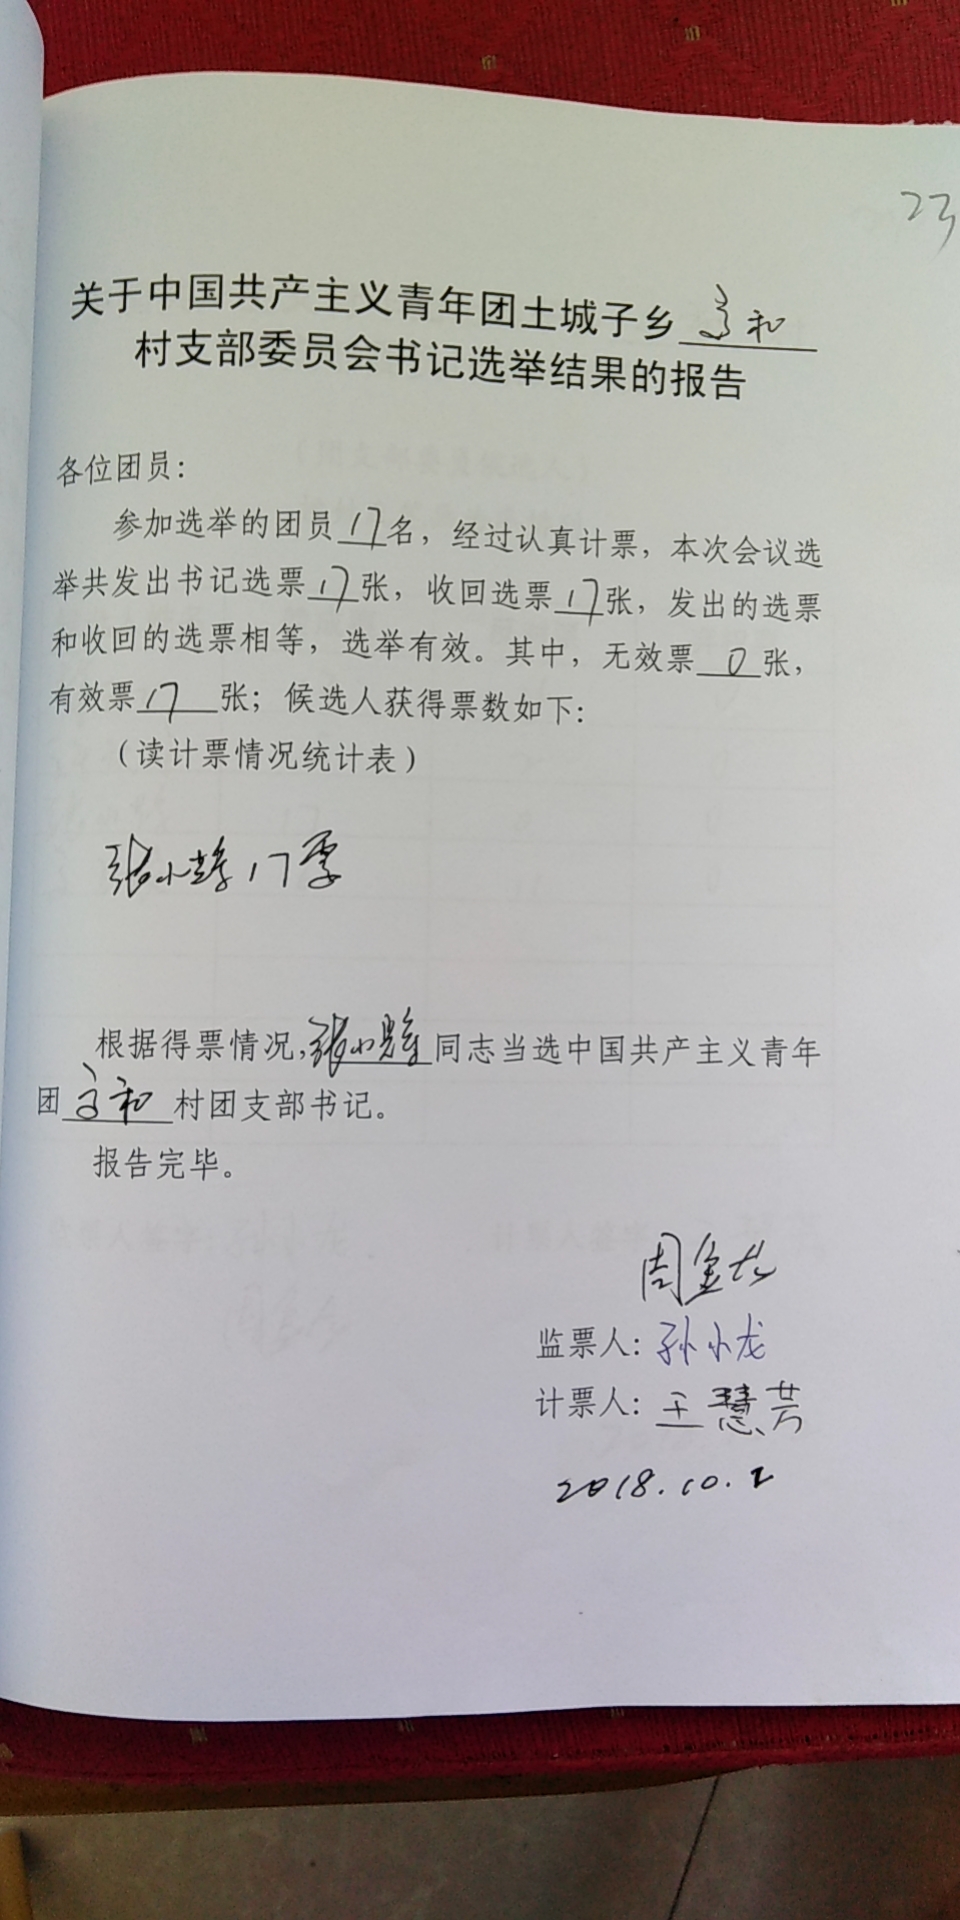 23
关于中国共产主义青年团土城子乡
村支部委员会书记选举结果的报告
各位团员：
参加选举的团员17名，经过认真计票，本次会议选
举共发出书记选票17张，收回选票17张，发出的选票
和收回的选票相等，选举有效。其中，无效票0张，
有效票17张；候选人获得票数如下：
（读计票情况统计表）
张小 17票
根据得票情况，张小 同志当选中国共产主义青年
团 村团支部书记。
报告完毕。
周金龙
监票人：孙小龙
计票人：王慧芳
2018.10.2